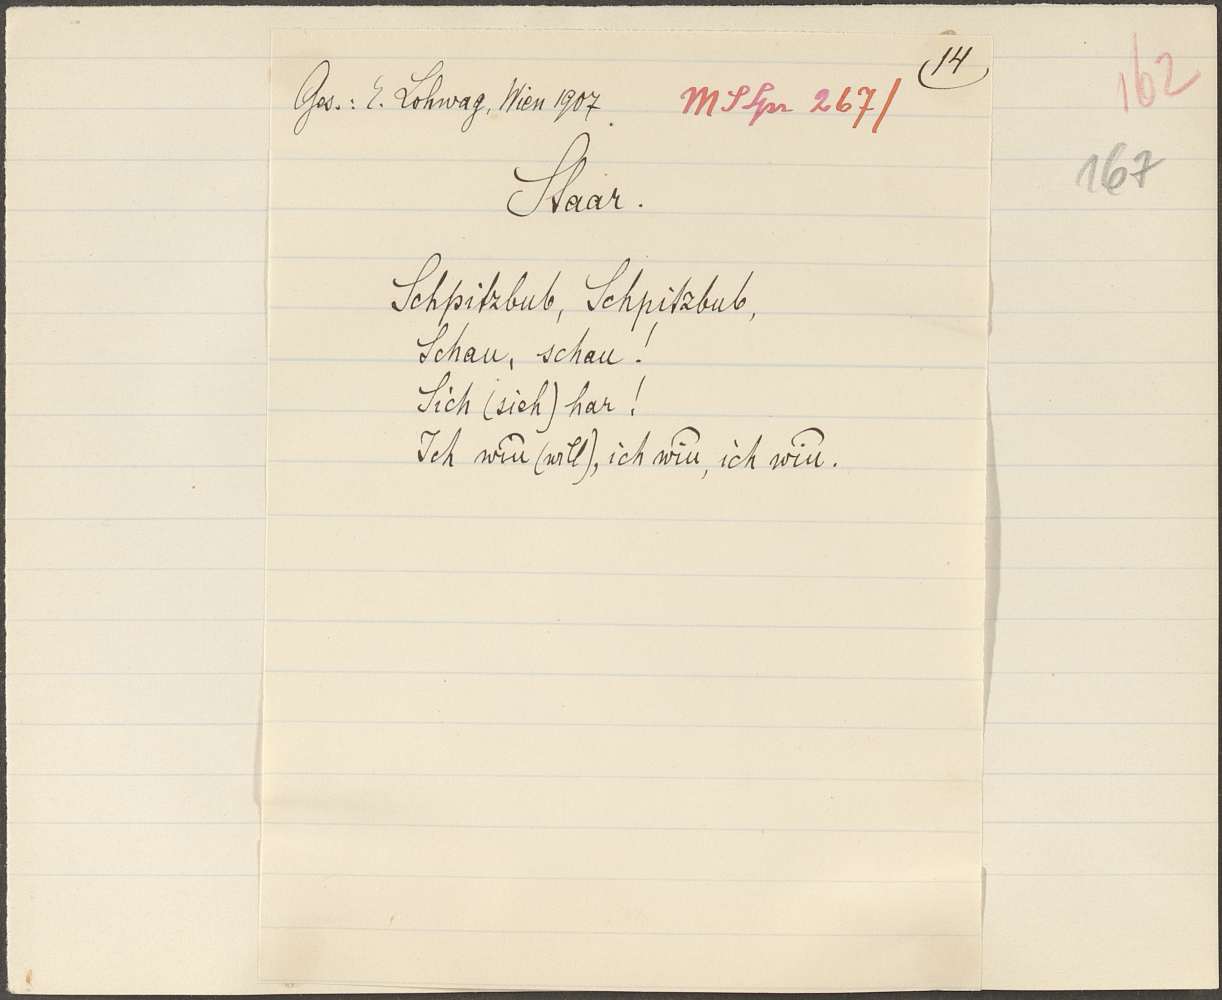 14
162
Ges.: E. Lohwag, Wien 1907.
267/
167
Staar.
Schpitzbub, Schpitzbub,
Schau, schau!
Sich (sieh) har!
Ich wiu (will), ich wiu, ich wiu.